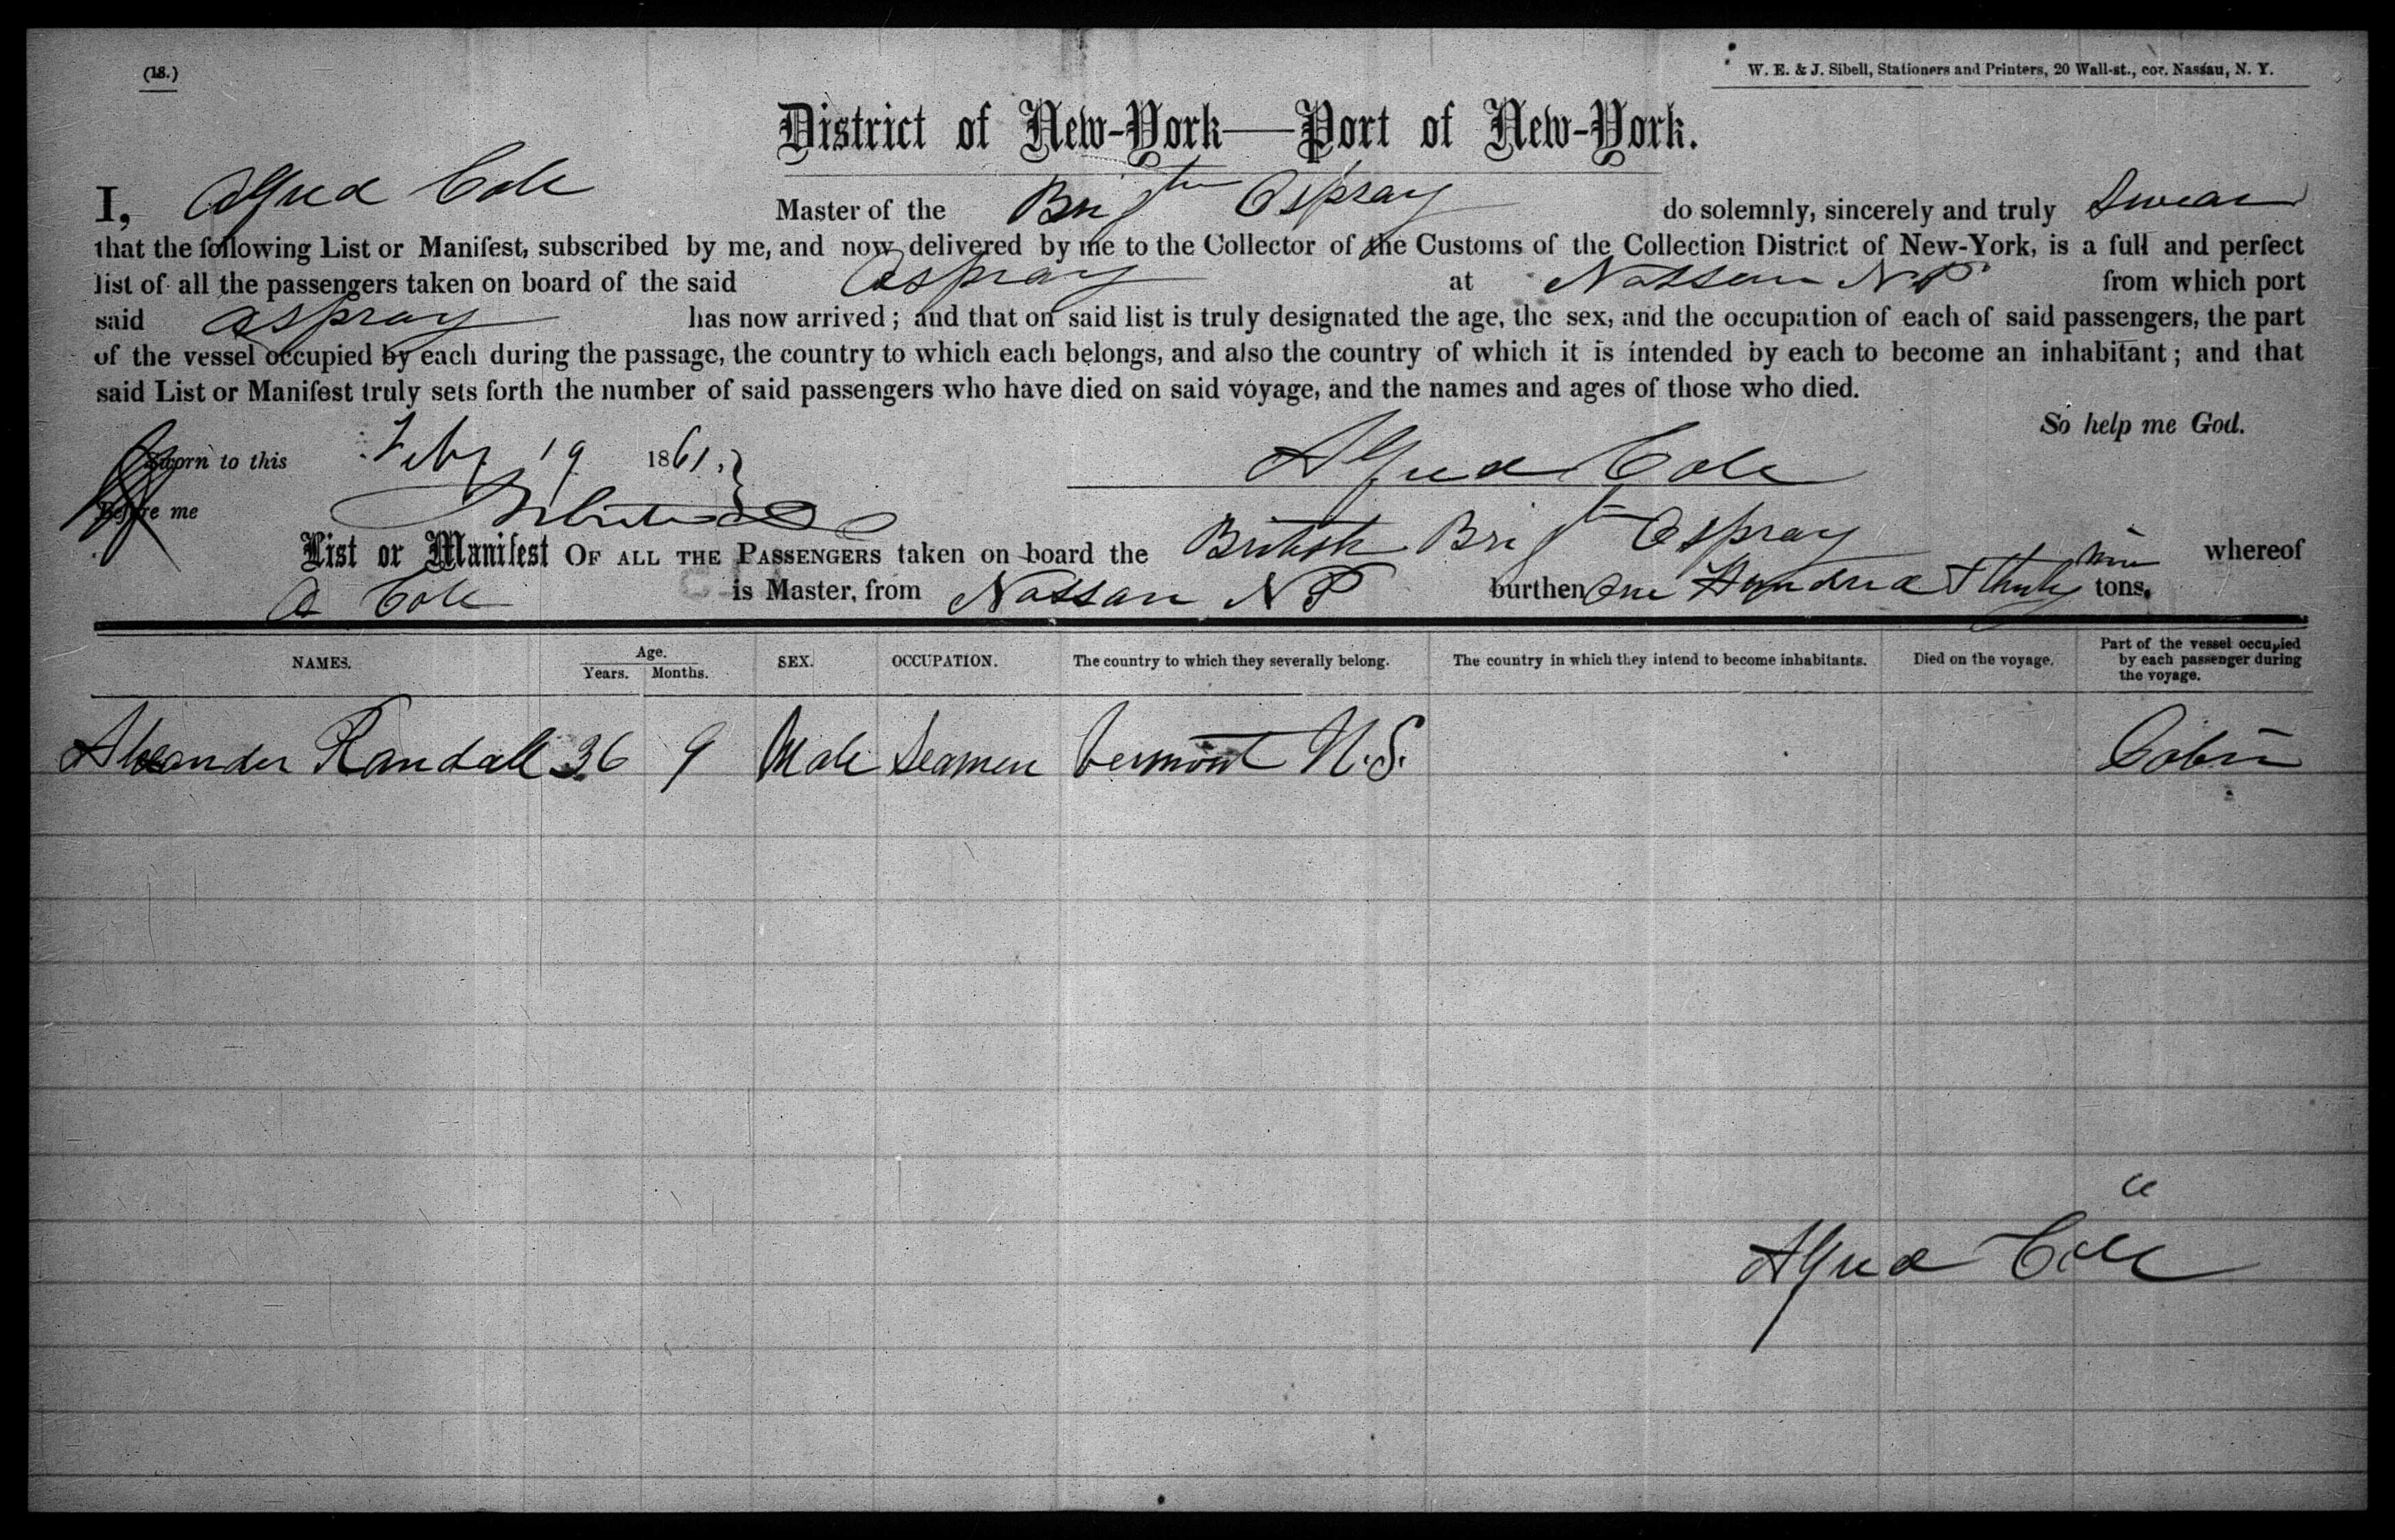 (18.)
W. E. & J. Sibell, Stationers and Printers, 20 Wall-st., cor. Nassau, N. Y.
District of New-York—Port of New-York.
I, Alfred Cole Master of the Brigtn Ospray do solemnly, sincerely and truly Swear
that the following List or Manifest, subscribed by me, and now delivered by me to the Collector of the Customs of the Collection District of New-York, is a full and perfect
list of all the passengers taken on board of the said Ospray at Nassau N P from which port
said Ospray has now arrived; and that on said list is truly designated the age, the sex, and the occupation of each of said passengers, the part
of the vessel occupied by each during the passage, the country to which each belongs, and also the country of which it is intended by each to become an inhabitant; and that
said List or Manifest truly sets forth the number of said passengers who have died on said voyage, and the names and ages of those who died.
So help me God.
Sworn to this Feby 19 1861. Alfred Cole
Before me
List or Manifest OF ALL THE PASSENGERS taken on board the British Brigtn Ospray whereof
A Cole is Master, from Nassau N P burthen One Hundred & Thirty Nine tons.
NAMES. Age. Years. Months. SEX. OCCUPATION. The country to which they severally belong. The country in which they intend to become inhabitants. Died on the voyage. Part of the vessel occupied by each passenger during the voyage.
Alexander Randall 36 9 Male Seamen Vermont U.S. Cabin
Alfred Cole